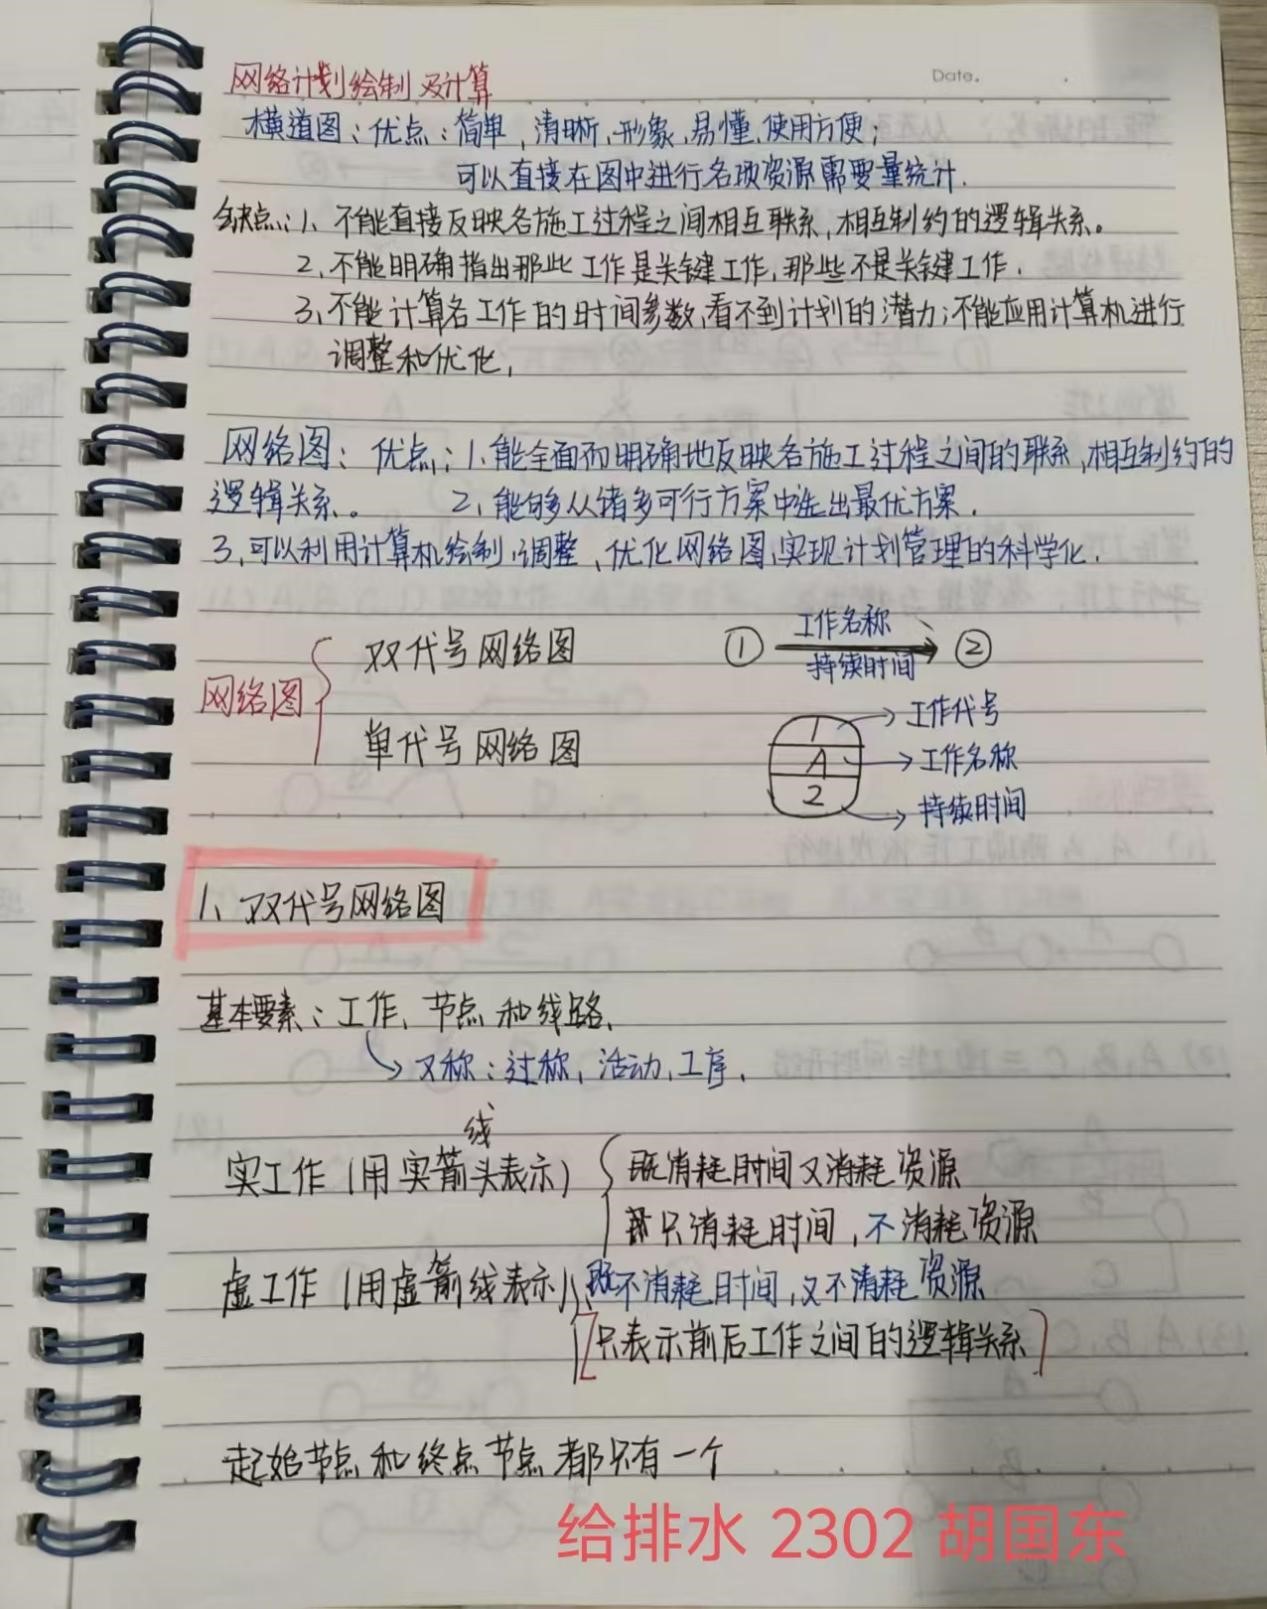 Date.
网络计划绘制及计算
横道图：优点：简单，清晰、形象、易懂、使用方便；
可以直接在图中进行各项资源需要量统计．
缺点：1、不能直接反映各施工过程之间相互联系，相互制约的逻辑关系。
2、不能明确指出那些工作是关键工作，那些不是关键工作．
3、不能计算各工作的时间参数，看不到计划的潜力；不能应用计算机进行
调整和优化，
网络图：优点：1、能全面而明确地反映各施工过程之间的联系，相互制约的
逻辑关系。 2、能够从诸多可行方案中选出最优方案．
3、可以利用计算机绘制、调整、优化网络图，实现计划管理的科学化．
网络图
双代号网络图
① 工作名称 ②
持续时间
单代号网络图
1 工作代号
A 工作名称
2 持续时间
1、双代号网络图
基本要素：工作、节点和线路、
又称：过称，活动、工序．
线
实工作（用实箭头表示） 既消耗时间又消耗资源
只消耗时间，不消耗资源
虚工作（用虚箭线表示） 既不消耗时间，又不消耗资源
[只表示前后工作之间的逻辑关系]
起始节点和终点节点都只有一个
给排水 2302 胡国东